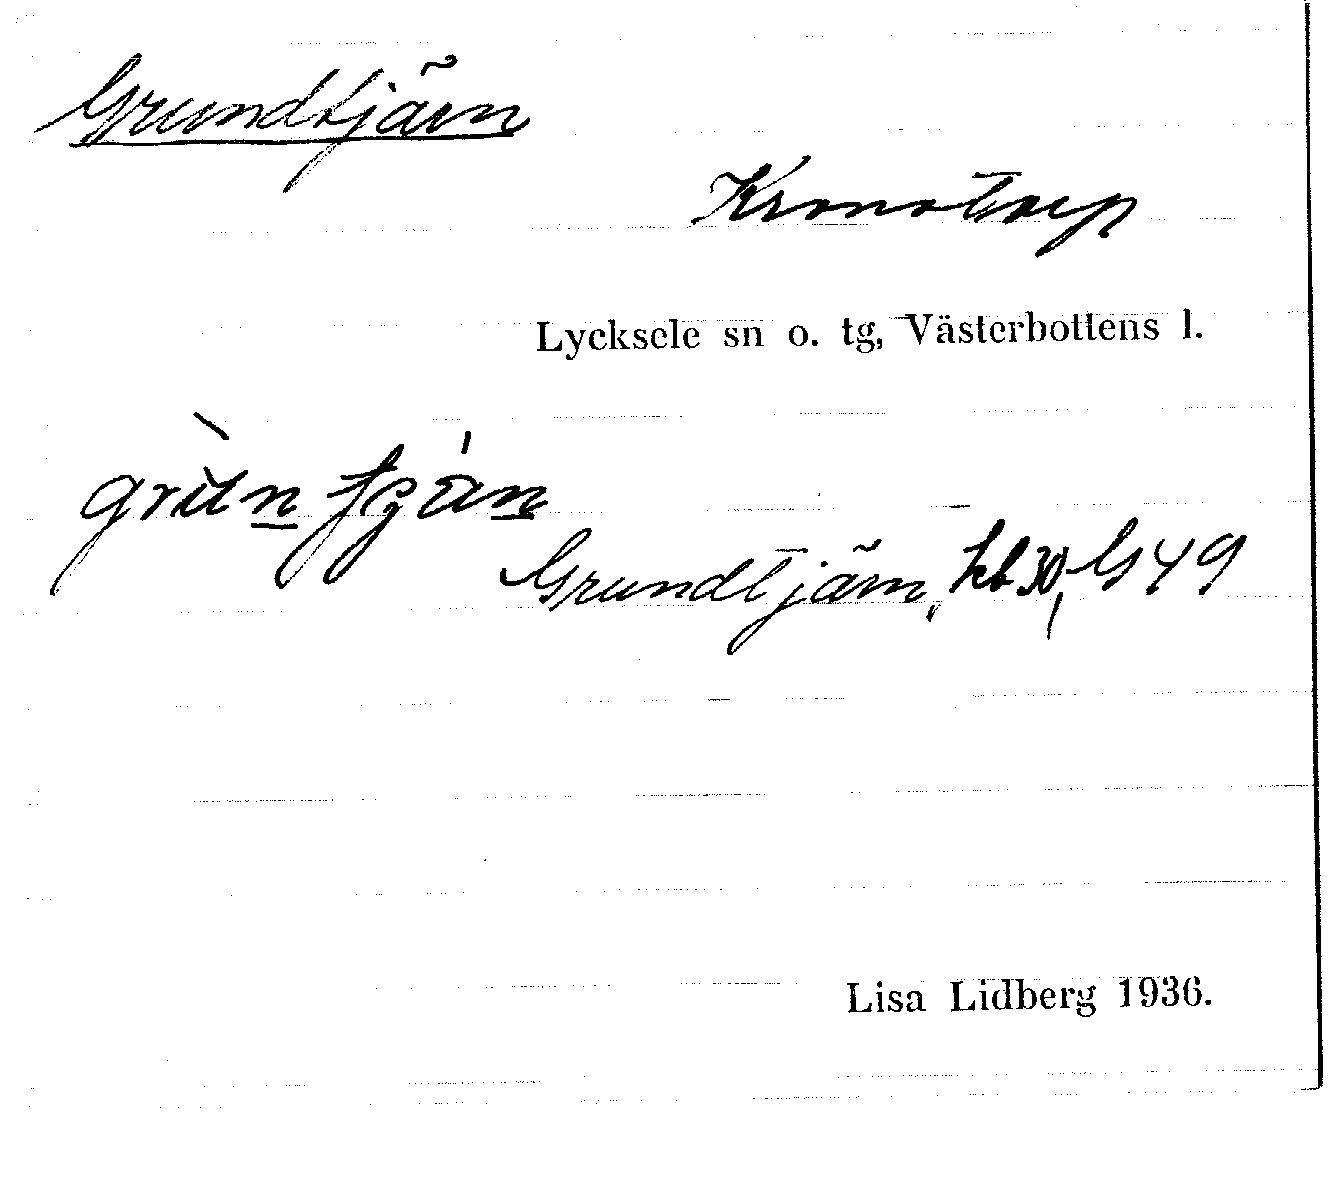 Grundtjärn
Kronotorp
Lycksele sn o. tg, Västerbottens l.
Grundtjärn, kb 30, G49
Lisa Lidberg 1936.